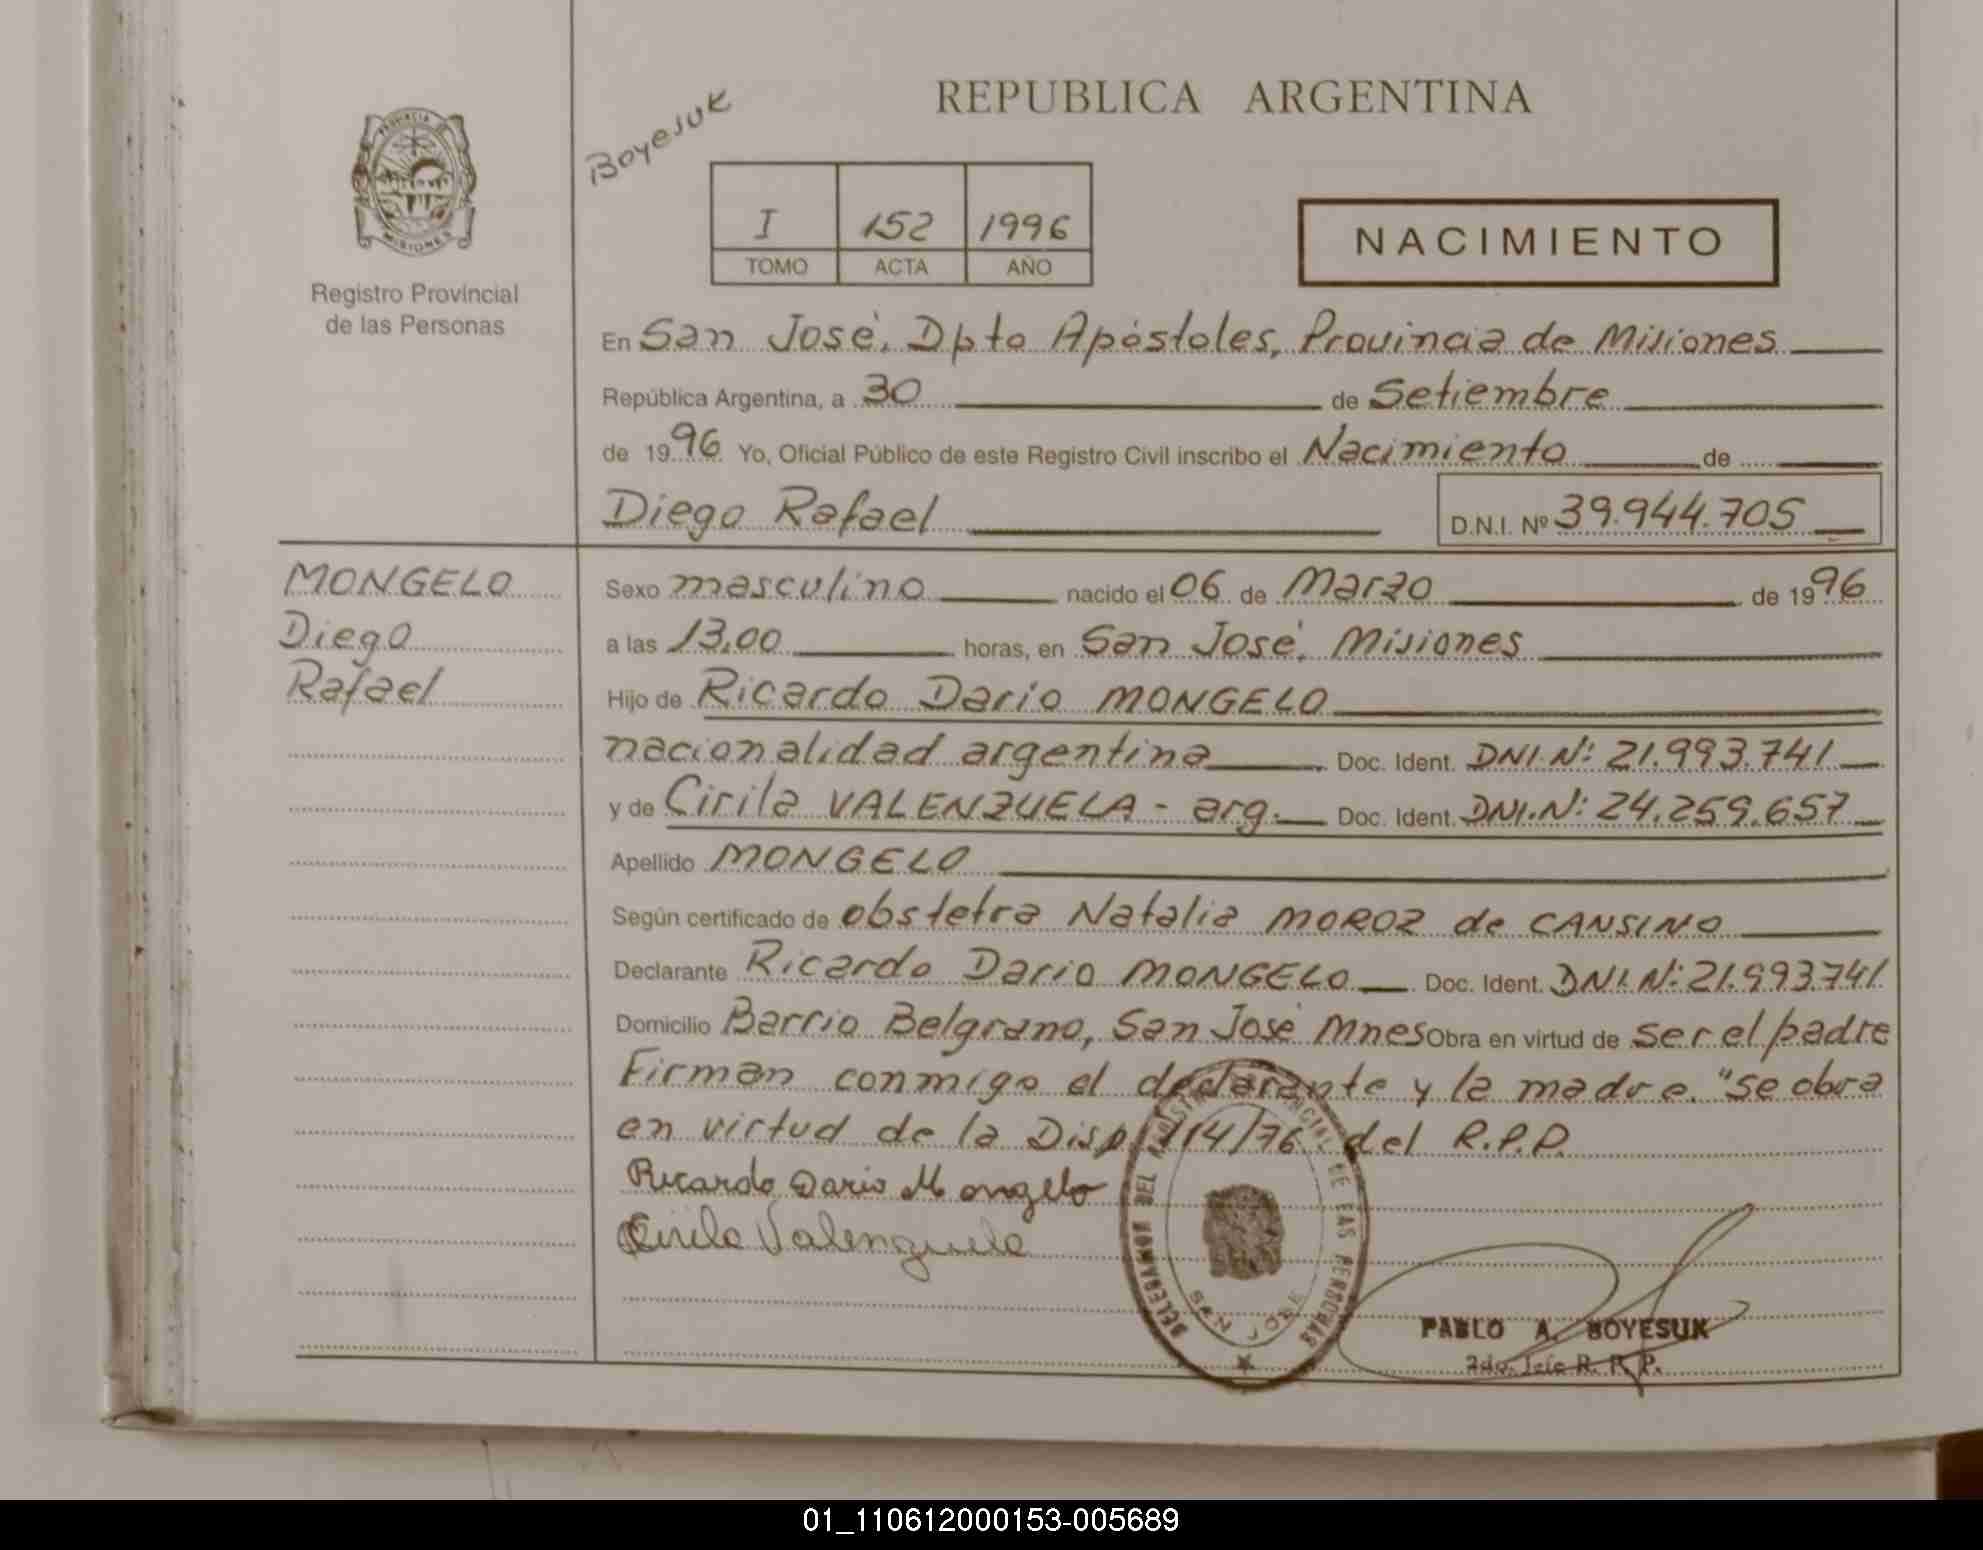 REPUBLICA ARGENTINA
Boyesuk
PROVINCIA DE
MISIONES
Registro Provincial
de las Personas
I 152 1996
TOMO ACTA AÑO
NACIMIENTO
En San José, Dpto Apóstoles, Provincia de Misiones
República Argentina, a 30 de Setiembre
de 1996 Yo, Oficial Público de este Registro Civil inscribo el Nacimiento de
Diego Rafael D.N.I. Nº 39.944.705
MONGELO
Diego
Rafael
Sexo masculino nacido el 06 de Marzo de 1996
a las 13,00 horas, en San José, Misiones
Hijo de Ricardo Dario MONGELO
nacionalidad argentina Doc. Ident. DNI.Nº: 21.993.741
y de Cirila VALENZUELA - arg. Doc. Ident. DNI.N: 24.259.657
Apellido MONGELO
Según certificado de obstetra Natalia MOROZ de CANSINO
Declarante Ricardo Dario MONGELO Doc. Ident. DNI.N: 21.993.741
Domicilio Barrio Belgrano, San José Mnes Obra en virtud de ser el padre
Firman conmigo el declarante y la madre. "Se obra
en virtud de la Disp. 114/76 del R.P.P.
Ricardo Dario Mongelo
Cirila Valenzuela
DELEGACION DEL REGISTRO PROVINCIAL DE LAS PERSONAS
SAN JOSE
PABLO A. BOYESUK
2do. Jefe R. P. P.
01_110612000153-005689